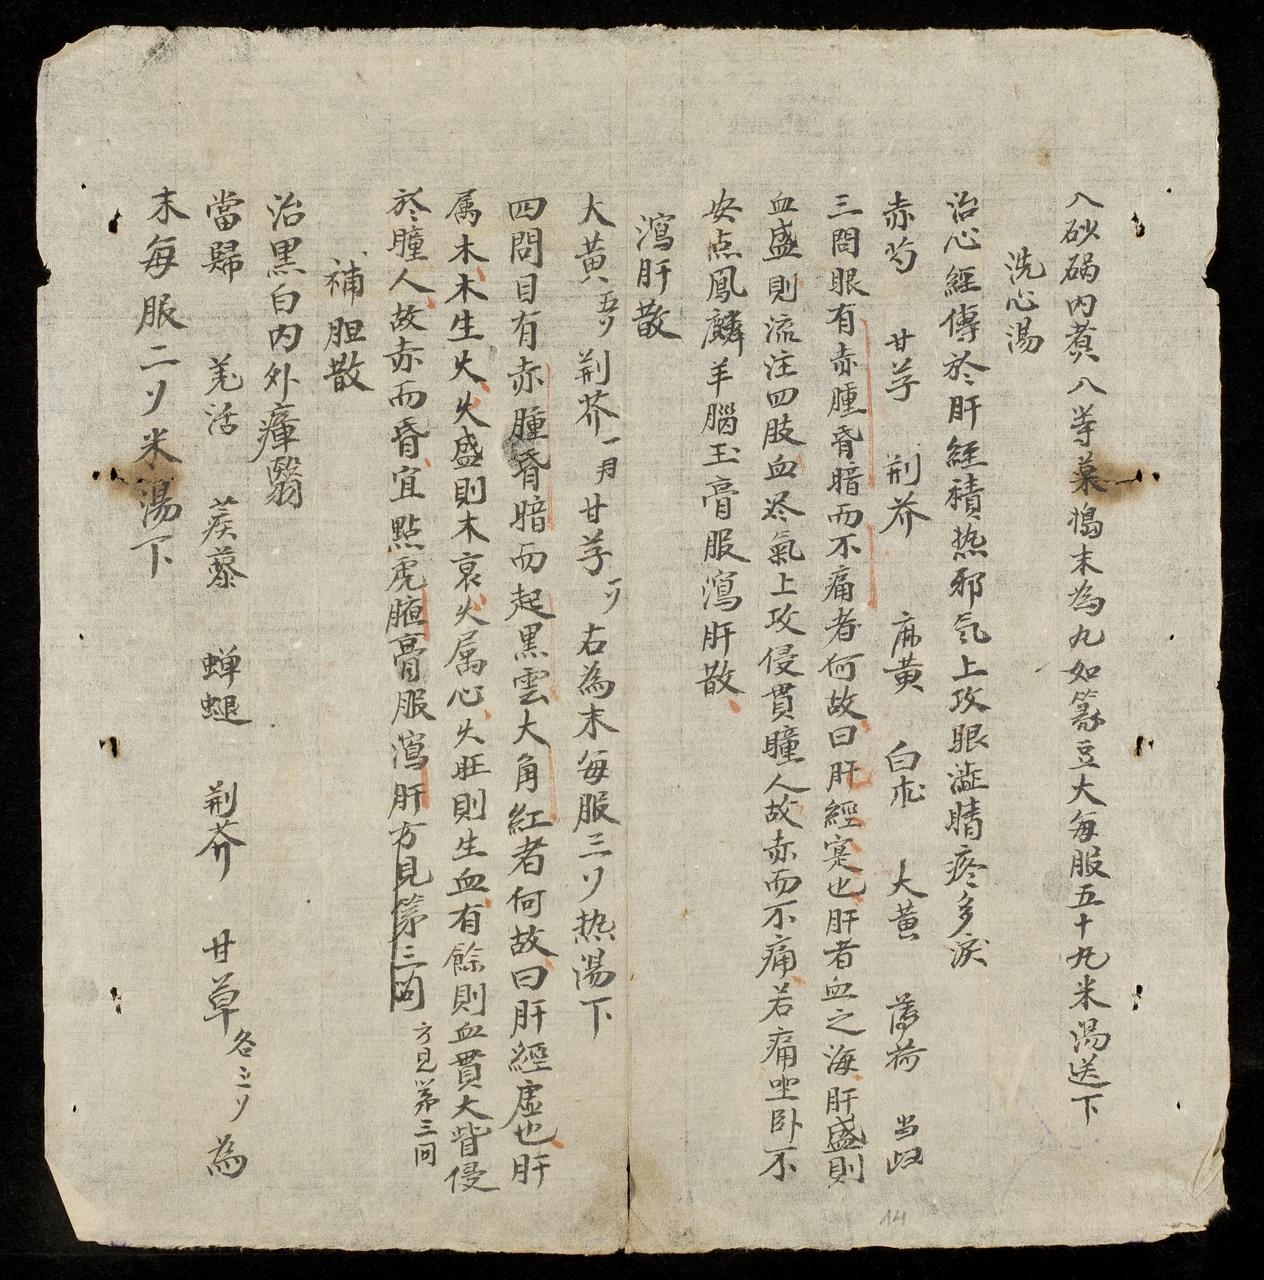 入砂碢内煮八等菓搗末為九如菉豆大每服五十九米湯送下
洗心湯
治心經傳於肝經積热邪氣上攻眼澁睛疼多淚
赤芍 甘草 荆芥 麻黄 白朮 大黄 薄荷 当归
三問眼有赤腫昏暗而不痛者何故曰肝經寔也肝者血之海肝盛則
血盛則流注四肢血癸氣上攻侵貫瞳人故赤而不痛若痛坐卧不
安点鳳麟羊腦玉膏服瀉肝散
瀉肝散
大黄五刂 荆芥一月 甘草刂 右為末每服三刂热湯下
四問目有赤腫昏暗而起黑雲大角紅者何故曰肝經虚也肝
属木木生火火盛則木衰火属心火旺則生血有餘則血貫大眥侵
於瞳人故赤而昏宜點虎腋膏服瀉肝方見第三問 方見第三问
補胆散
治黑白内外瘴翳
當歸 羌活 蒺藜 蝉蜕 荆芥 甘草各三刂為
末每服二刂米湯下
14